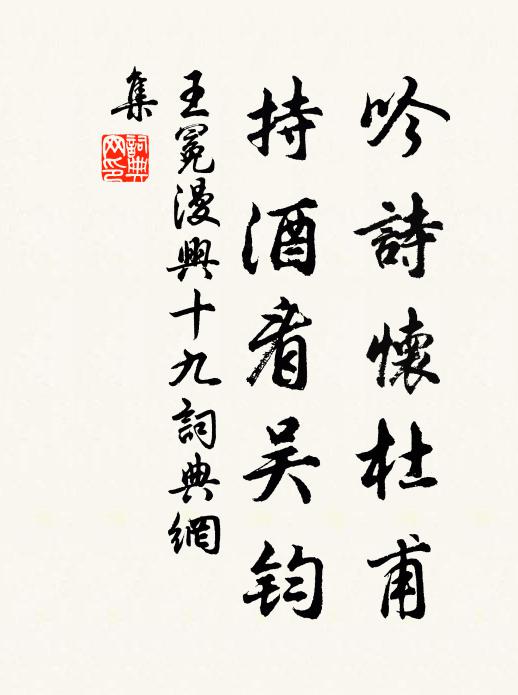 吟詩懷杜甫
持酒看吴鈎
王冕漫興十九詞典網
集
詞典網印